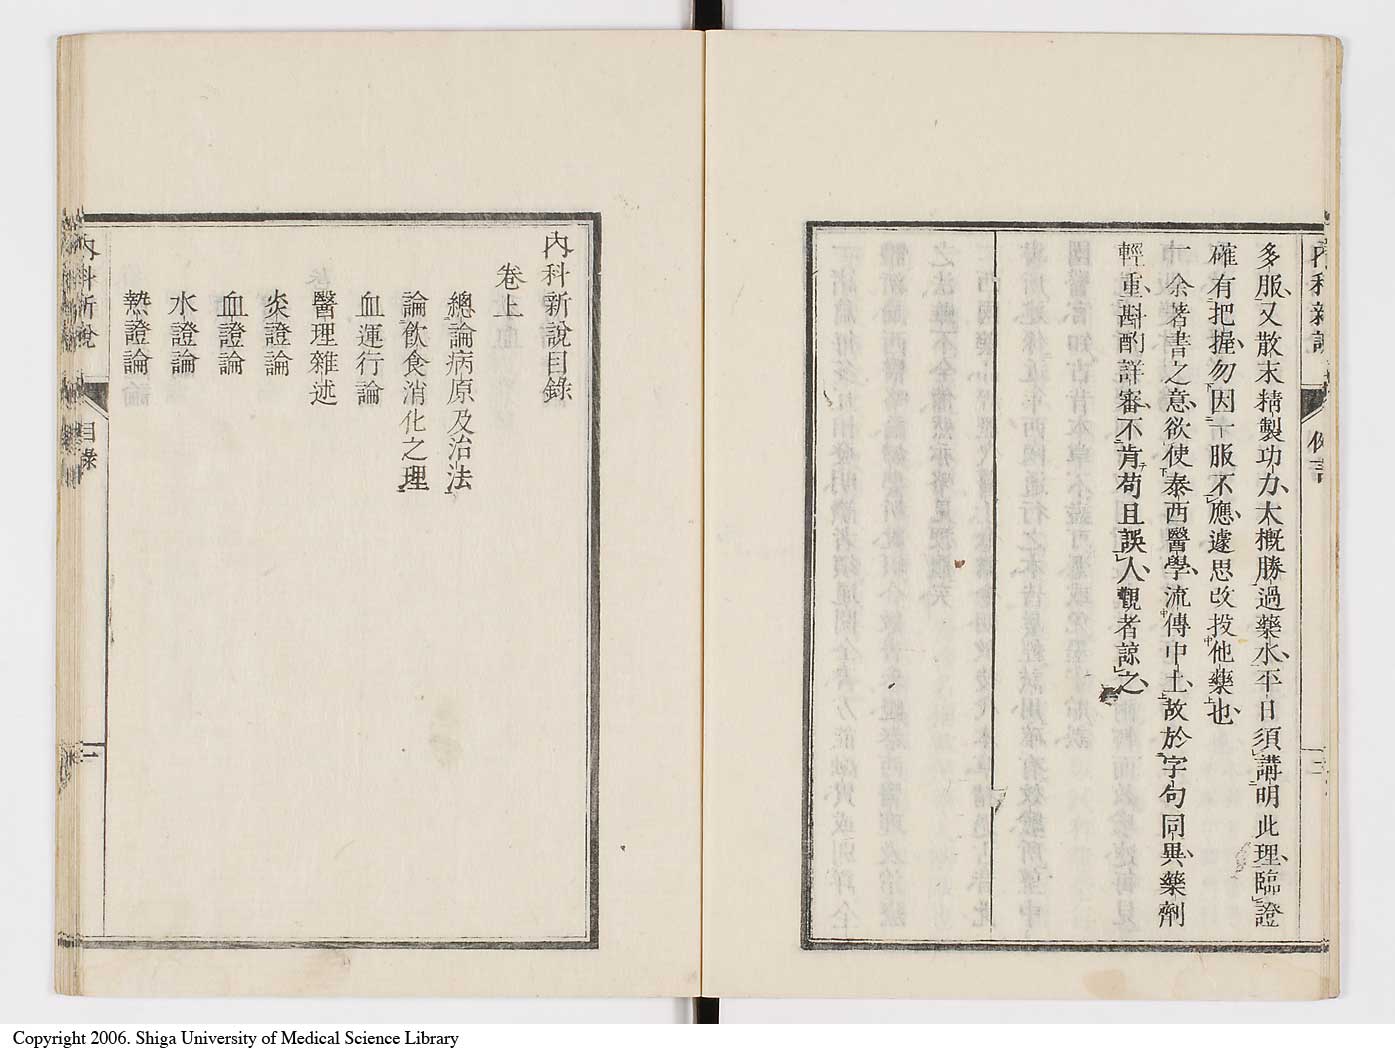 多服又散末精製功力大概勝過藥水平日須講明此理臨證
確有把握勿因一服不應遽思改投他藥也
一余著書之意欲使泰西醫學流傳中土故於字句同異藥劑
輕重斟酌詳審不肯苟且誤人觀者諒之
內科新說目錄
卷上
總論病原及治法
論飲食消化之理
血運行論
醫理雜述
炎證論
血證論
水證論
熱證論
內科新說
目錄
一
Copyright 2006. Shiga University of Medical Science Library